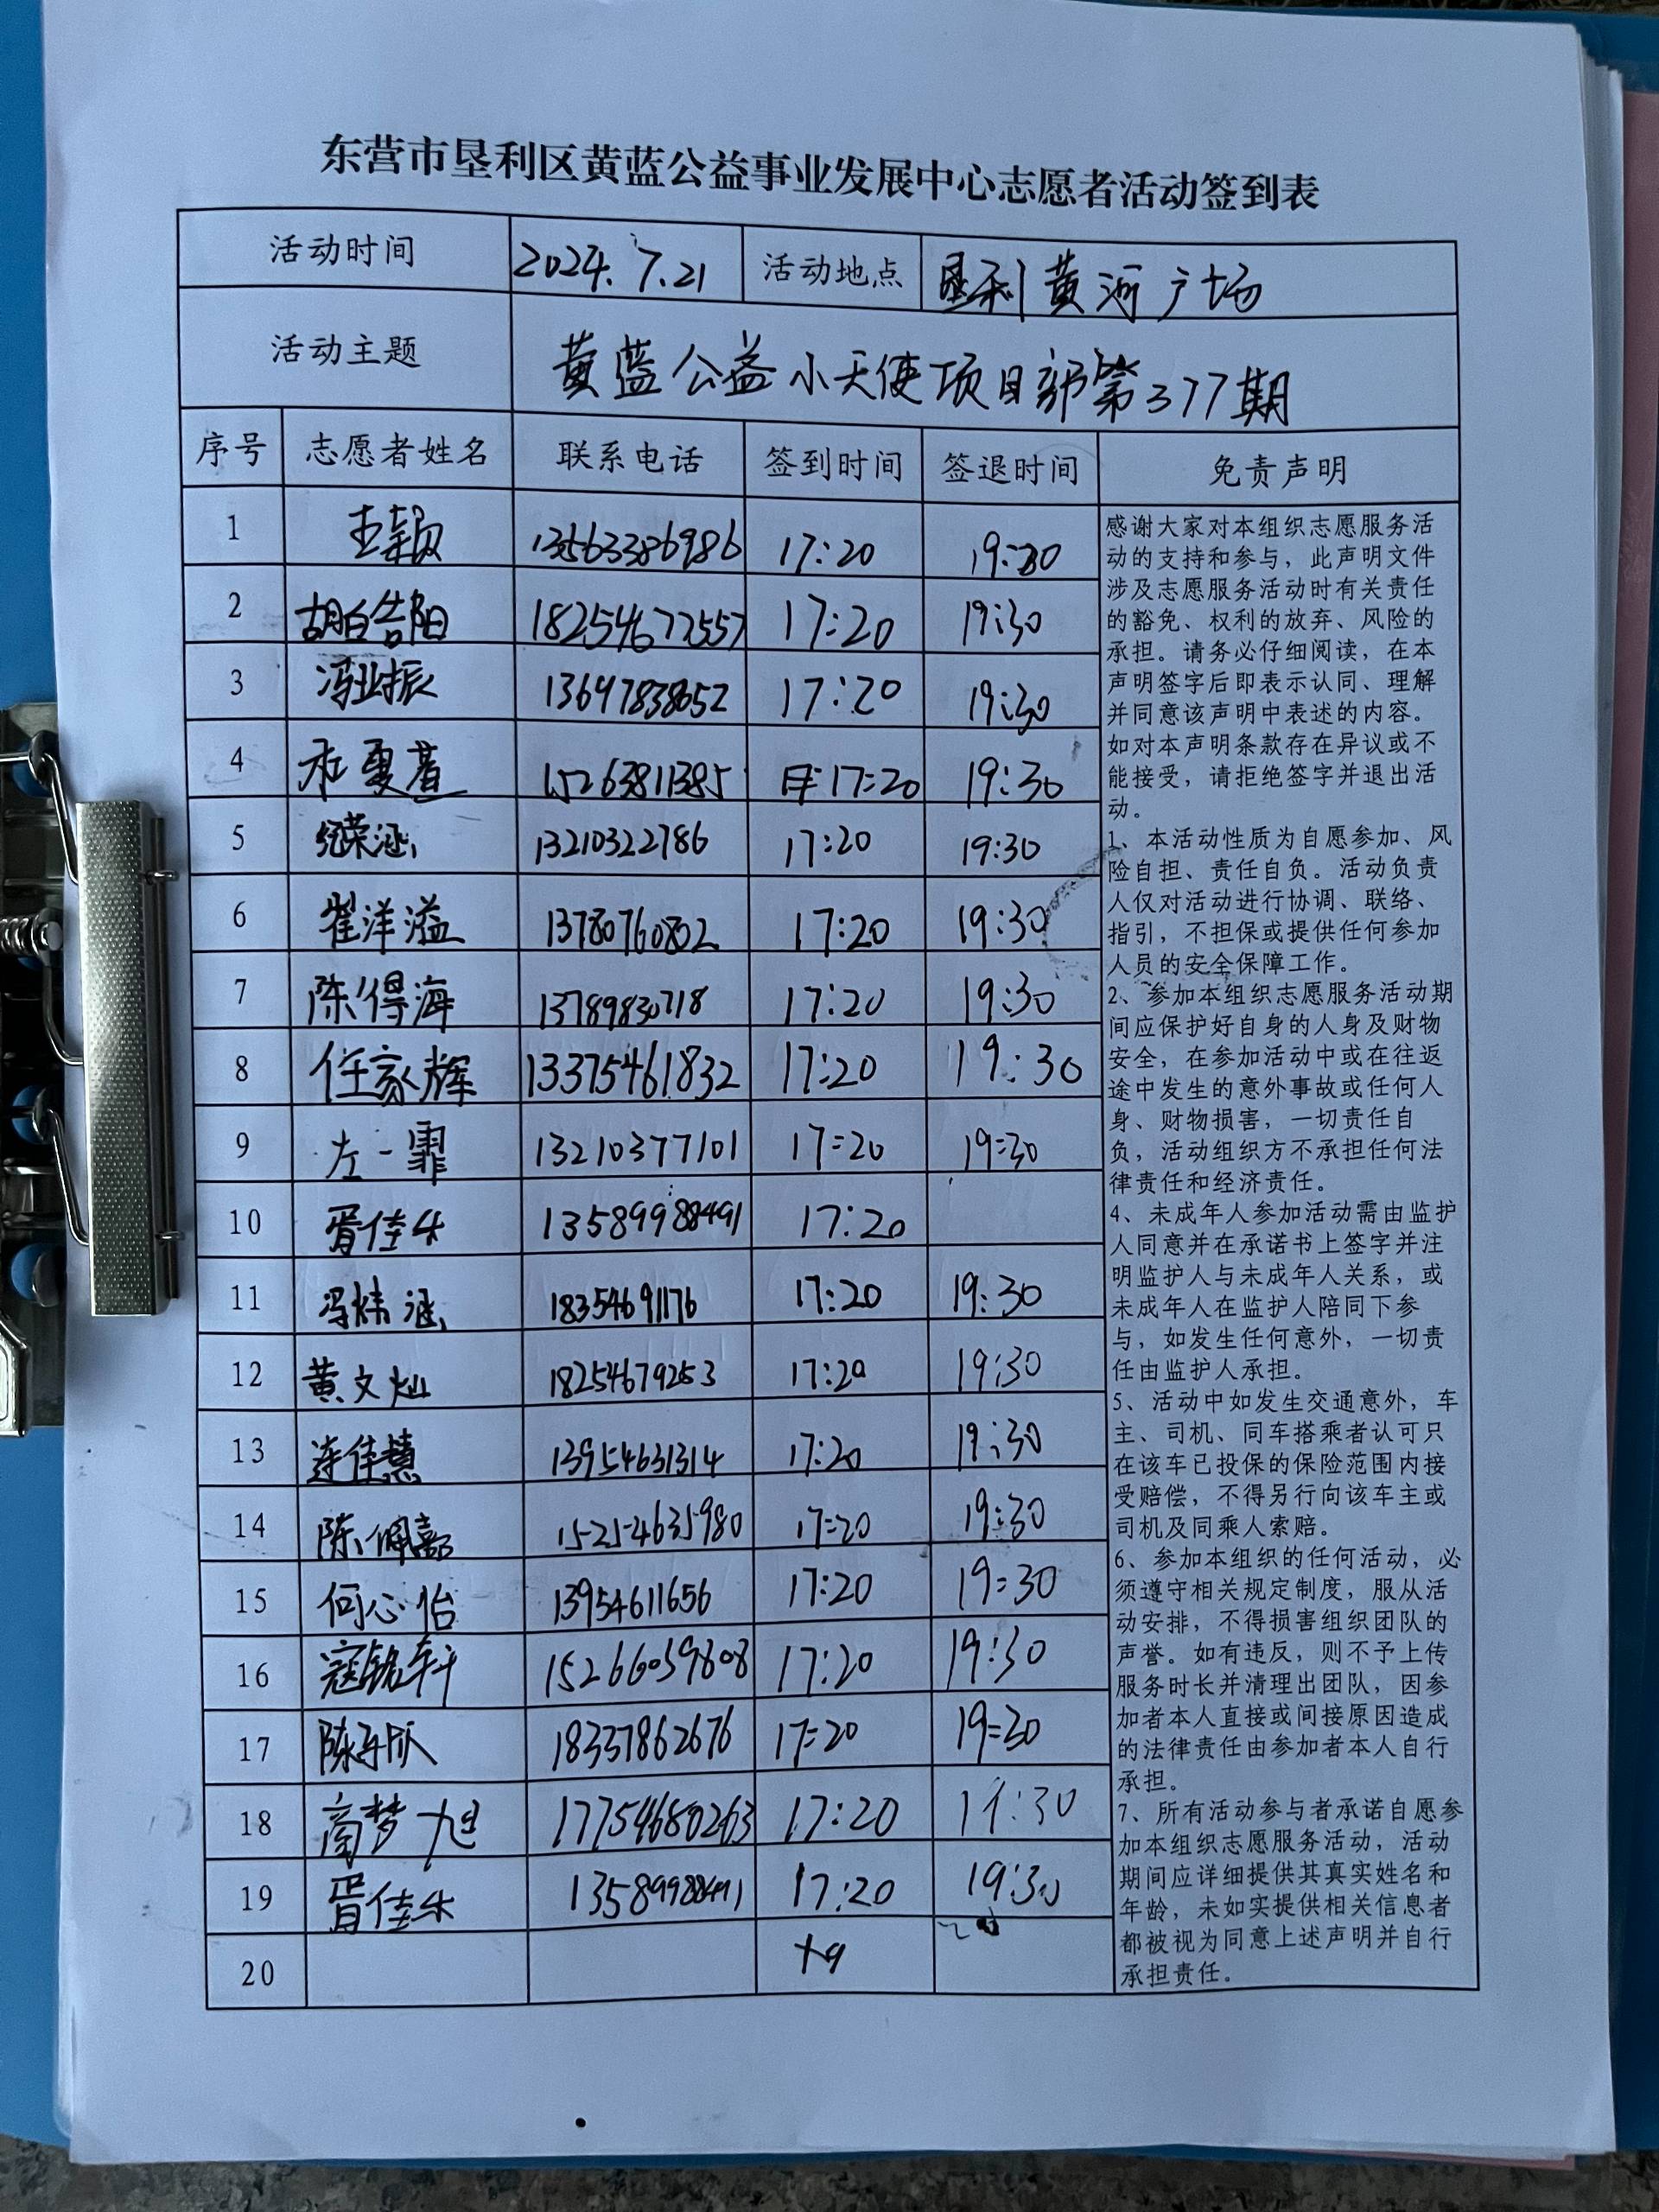 东营市垦利区黄蓝公益事业发展中心志愿者活动签到表
活动时间 2024.7.21 活动地点 垦利黄河广场
活动主题 黄蓝公益小天使项目部第377期
序号 志愿者姓名 联系电话 签到时间 签退时间 免责声明
1 王颖 13563386986 17:20 19:30
2 18254672557 17:20 19:30
3 冯业振 13697838652 17:20 19:30
4 15263811385 17:20 19:30
5 13210322786 17:20 19:30
6 崔洋溢 13780760802 17:20 19:30
7 陈得海 13789830718 17:20 19:30
8 任家辉 13375461832 17:20 19:30
9 左一霏 13210377101 17:20 19:30
10 胥佳乐 13589988491 17:20
11 冯炜涵 18354691176 17:20 19:30
12 黄文灿 18254679253 17:20 19:30
13 连佳慧 13954631314 17:20 19:30
14 陈佩嘉 15254635980 17:20 19:30
15 何心怡 13954611656 17:20 19:30
16 15266039808 17:20 19:30
17 18337862676 17:20 19:30
18 高梦旭 17754680263 17:20 19:30
19 胥佳乐 13589988491 17:20 19:30
20
感谢大家对本组织志愿服务活
动的支持和参与，此声明文件
涉及志愿服务活动时有关责任
的豁免、权利的放弃、风险的
承担。请务必仔细阅读，在本
声明签字后即表示认同、理解
并同意该声明中表述的内容。
如对本声明条款存在异议或不
能接受，请拒绝签字并退出活
动。
1、本活动性质为自愿参加、风
险自担、责任自负。活动负责
人仅对活动进行协调、联络、
指引，不担保或提供任何参加
人员的安全保障工作。
2、参加本组织志愿服务活动期
间应保护好自身的人身及财物
安全，在参加活动中或在往返
途中发生的意外事故或任何人
身、财物损害，一切责任自
负，活动组织方不承担任何法
律责任和经济责任。
4、未成年人参加活动需由监护
人同意并在承诺书上签字并注
明监护人与未成年人关系，或
未成年人在监护人陪同下参
与，如发生任何意外，一切责
任由监护人承担。
5、活动中如发生交通意外，车
主、司机、同车搭乘者认可只
在该车已投保的保险范围内接
受赔偿，不得另行向该车主或
司机及同乘人索赔。
6、参加本组织的任何活动，必
须遵守相关规定制度，服从活
动安排，不得损害组织团队的
声誉。如有违反，则不予上传
服务时长并清理出团队，因参
加者本人直接或间接原因造成
的法律责任由参加者本人自行
承担。
7、所有活动参与者承诺自愿参
加本组织志愿服务活动，活动
期间应详细提供其真实姓名和
年龄，未如实提供相关信息者
都被视为同意上述声明并自行
承担责任。